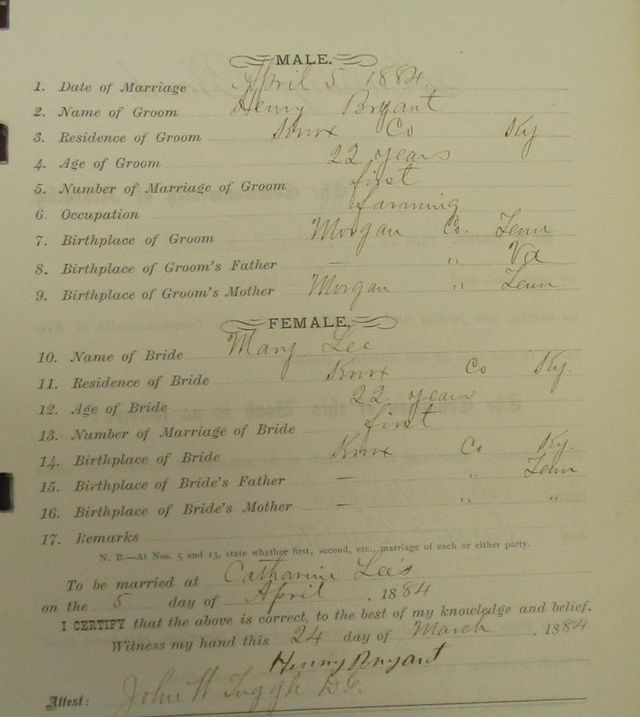 MALE.
1. Date of Marriage April 5 1884.
2. Name of Groom Henry Bryant
3. Residence of Groom Knox Co Ky
4. Age of Groom 22 years
5. Number of Marriage of Groom first
6. Occupation farming
7. Birthplace of Groom Morgan Co. Tenn
8. Birthplace of Groom's Father — " Va
9. Birthplace of Groom's Mother Morgan " Tenn
FEMALE.
10. Name of Bride Mary Lee
11. Residence of Bride Knox Co Ky.
12. Age of Bride 22 years
13. Number of Marriage of Bride first
14. Birthplace of Bride Knox Co Ky.
15. Birthplace of Bride's Father — " Tenn
16. Birthplace of Bride's Mother — " "
17. Remarks
N. B.—At Nos. 5 and 13, state whether first, second, etc., marriage of each or either party.
To be married at Catharine Lee's
on the 5 day of April, 1884
I CERTIFY that the above is correct, to the best of my knowledge and belief.
Witness my hand this 24 day of March, 1884
Henry Bryant
Attest: John W Tuggle D.C.